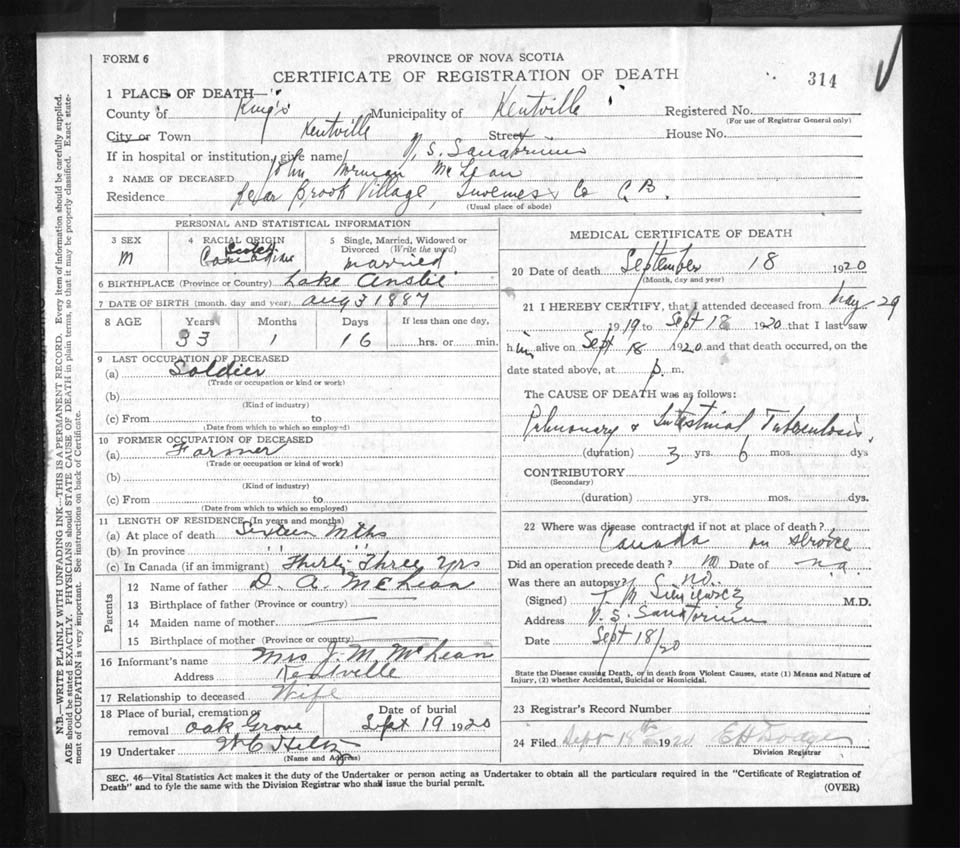 FORM 6
PROVINCE OF NOVA SCOTIA
CERTIFICATE OF REGISTRATION OF DEATH
314
1 PLACE OF DEATH—
County of King's Municipality of Kentville Registered No.
(For use of Registrar General only)
City or Town Kentville Street House No.
If in hospital or institution, give name N. S. Sanatorium
2 NAME OF DECEASED John Norman McLean
Residence Brook Village, Inverness Co C.B.
(Usual place of abode)
PERSONAL AND STATISTICAL INFORMATION
3 SEX
M
4 RACIAL ORIGIN
Scotch
5 Single, Married, Widowed or Divorced (Write the word)
married
6 BIRTHPLACE (Province or Country) Lake Ainslie
7 DATE OF BIRTH (month, day and year) Aug 3 1887
8 AGE Years Months Days If less than one day,
33 1 16 hrs. or min.
9 LAST OCCUPATION OF DECEASED
(a) Soldier
(Trade or occupation or kind or work)
(b)
(Kind of industry)
(c) From to
(Date from which to which so employed)
10 FORMER OCCUPATION OF DECEASED
(a) Farmer
(Trade or occupation or kind of work)
(b)
(Kind of industry)
(c) From to
(Date from which to which so employed)
11 LENGTH OF RESIDENCE (In years and months)
(a) At place of death Sixteen Mths
(b) In province " "
(c) In Canada (if an immigrant) Thirty Three Yrs
Parents
12 Name of father D. A. McLean
13 Birthplace of father (Province or country)
14 Maiden name of mother
15 Birthplace of mother (Province or country)
16 Informant's name Mrs J. M. McLean
Address Kentville
17 Relationship to deceased Wife
18 Place of burial, cremation or removal Oak Grove
Date of burial Sept 19 1920
19 Undertaker
(Name and Address)
MEDICAL CERTIFICATE OF DEATH
20 Date of death September 18 1920
(Month, day and year)
21 I HEREBY CERTIFY, that I attended deceased from May 29
1919 to Sept 18 1920 that I last saw
him alive on Sept 18 1920 and that death occurred, on the
date stated above, at p. m.
The CAUSE OF DEATH was as follows:
Pulmonary & Intestinal Tuberculosis.
(duration) 3 yrs. 6 mos. dys
CONTRIBUTORY
(Secondary)
(duration) yrs. mos. dys.
22 Where was disease contracted if not at place of death?
Canada on service
Did an operation precede death? no Date of n.a.
Was there an autopsy? no.
(Signed) M.D.
Address N. S. Sanatorium
Date Sept 18/20
State the Disease causing Death, or in death from Violent Causes, state (1) Means and Nature of
Injury, (2) whether Accidental, Suicidal or Homicidal.
23 Registrar's Record Number
24 Filed Sept 18th 1920
Division Registrar
SEC. 46—Vital Statistics Act makes it the duty of the Undertaker or person acting as Undertaker to obtain all the particulars required in the "Certificate of Registration of
Death" and to fyle the same with the Division Registrar who shall issue the burial permit.
(OVER)
N.B.—WRITE PLAINLY WITH UNFADING INK—THIS IS A PERMANENT RECORD. Every item of information should be carefully supplied.
AGE should be stated EXACTLY. PHYSICIANS should STATE CAUSE OF DEATH in plain terms, so that it may be properly classified. Exact state-
ment of OCCUPATION is very important. See instructions on back of Certificate.